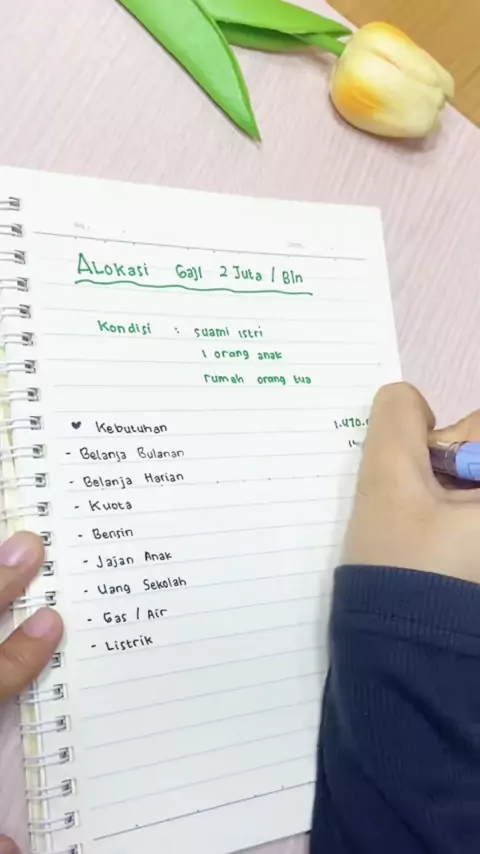 ALokasi Gaji 2 Juta / Bln
Kondisi : suami istri
1 orang anak
rumah orang tua
♥ Kebutuhan
- Belanja Bulanan
- Belanja Harian
- Kuota
- Bensin
- Jajan Anak
- Uang Sekolah
- Gas / Air
- Listrik